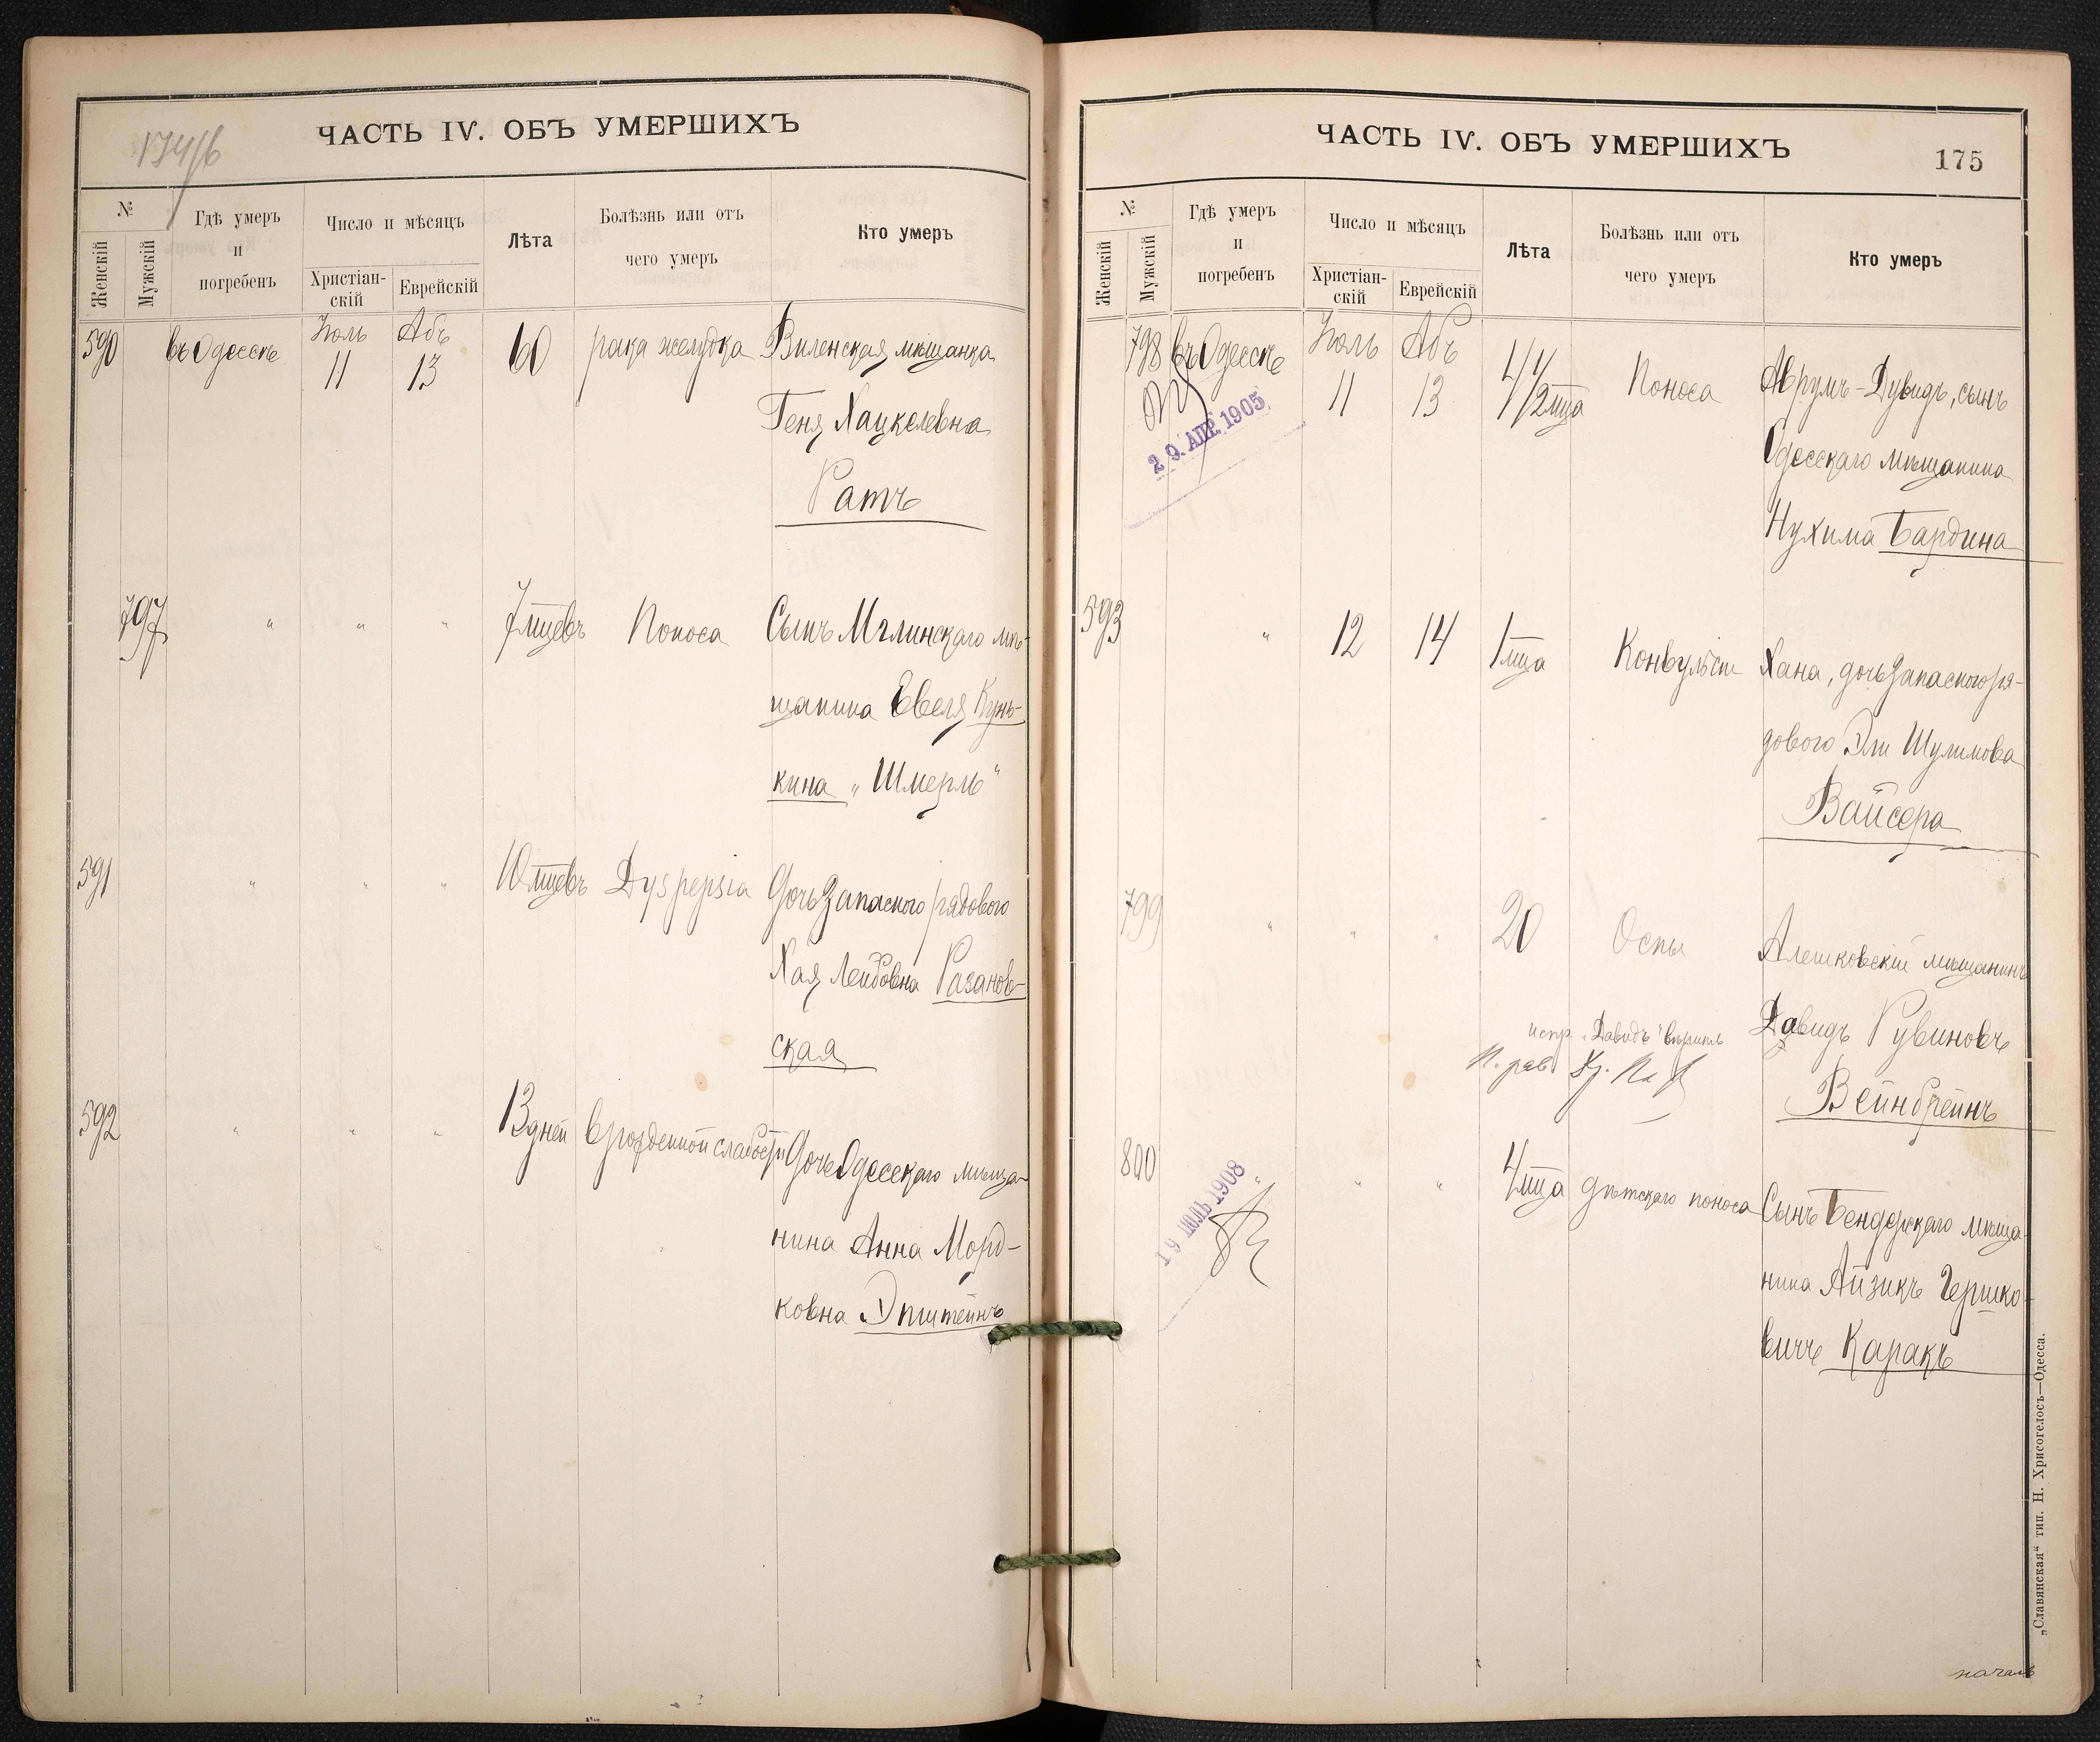 174/6
ЧАСТЬ IV. ОБЪ УМЕРШИХЪ
№
Женскій
Мужскій
Гдѣ умеръ
и
погребенъ
Число и мѣсяцъ
Христіан-
скій
Еврейскій
Лѣта
Болѣзнь или отъ
чего умеръ
Кто умеръ
590 въ Одессѣ Іюль 11 Абъ 13 60 рака желудка Виленская мѣщанка
Геня Хацкелевна
Ратъ
797 " " " 7 мцевъ Поноса Сынъ Мглинскаго мѣ-
щанина Евеля Кунь-
кина „Шмерль"
591 " " " 10 мцевъ Dyspepsia Дочь Запасного рядового
Хая Лейбовна Разанов-
ская
592 " " " 13 дней врожденной слабости Дочь Одесскаго мѣща-
нина Анна Морд-
ковна Эпштейнъ
ЧАСТЬ IV. ОБЪ УМЕРШИХЪ
175
№
Женскій
Мужскій
Гдѣ умеръ
и
погребенъ
Число и мѣсяцъ
Христіан-
скій
Еврейскій
Лѣта
Болѣзнь или отъ
чего умеръ
Кто умеръ
798 въ Одессѣ Іюль 11 Абъ 13 4 1/2 мца Поноса Аврумъ-Дувидъ, сынъ
29. АПР. 1905
Одесскаго мѣщанина
Нухима Бардина
593 " 12 14 1 мца Конвульсіи Хана, дочь Запасного ря-
дового Эли Шулимова
Вайсера
799 " " " 20 Оспы Алешковскій мѣщанинъ
Давидъ Рувиновъ
испр. „Давидъ" вѣрить
Вейнбрейнъ
800 " " " 4 мца дѣтскаго поноса Сынъ Бендерскаго мѣща-
19 ІЮЛЬ 1908
нина Айзикъ Гершко-
вичъ Каракъ
„Славянская“ тип. Н. Хрисогелосъ—Одесса.